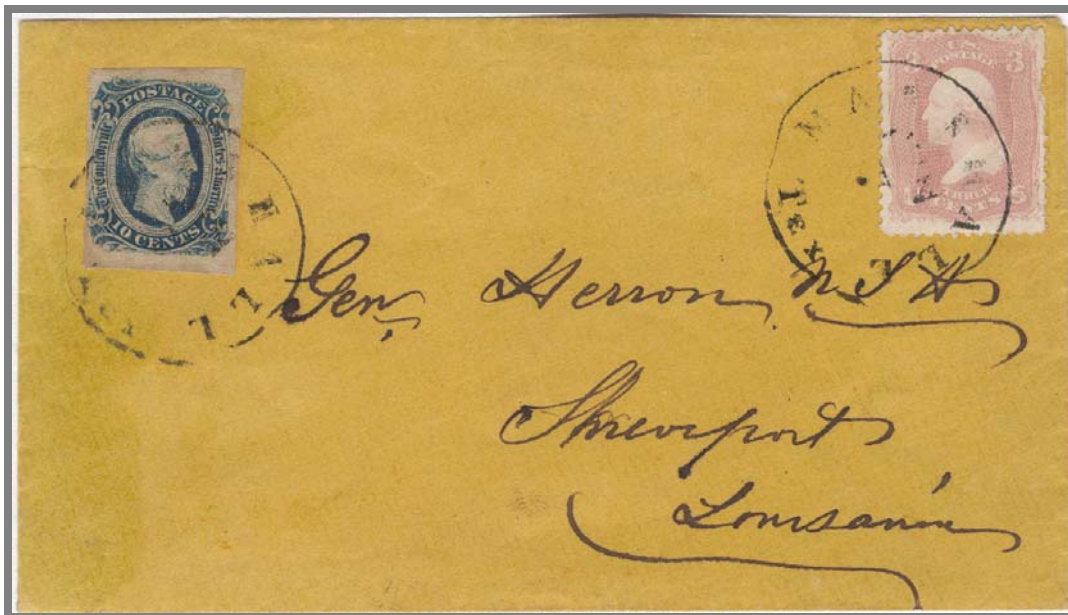 POSTAGE
The Confederate States of America
10 CENTS
U.S.
POSTAGE
3 3
THREE
CENTS
Tex
Gen, Herron, U S A
Shreveport
Lousania